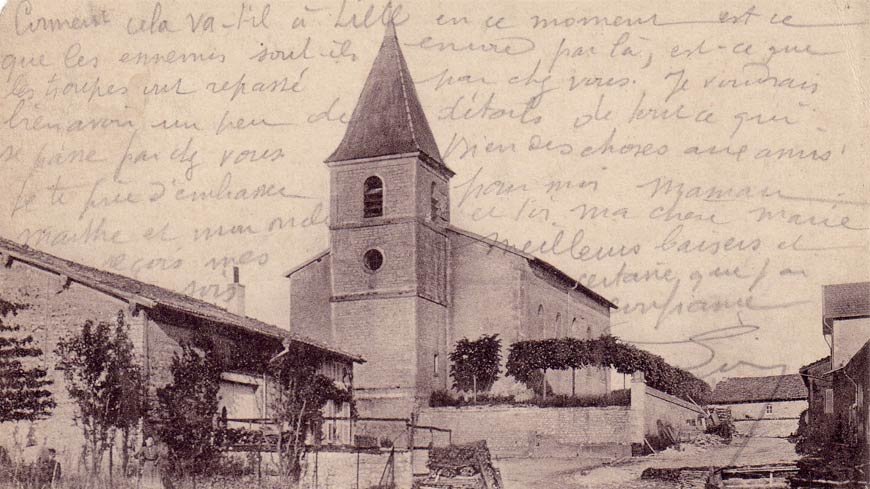 Comment cela va-t-il à Lille en ce moment est ce
que les ennemis sont-ils encore par là, est-ce que
les troupes ont repassé par chez vous. Je voudrais
bien avoir un peu de détails de tout ce qui
se passe par chez vous. Bien des choses aux amis
je te prie d'embrasser pour moi Maman
Marthe et mon oncle et toi, ma chère Marie
reçois mes meilleurs baisers et
sois certaine que j'ai
confiance